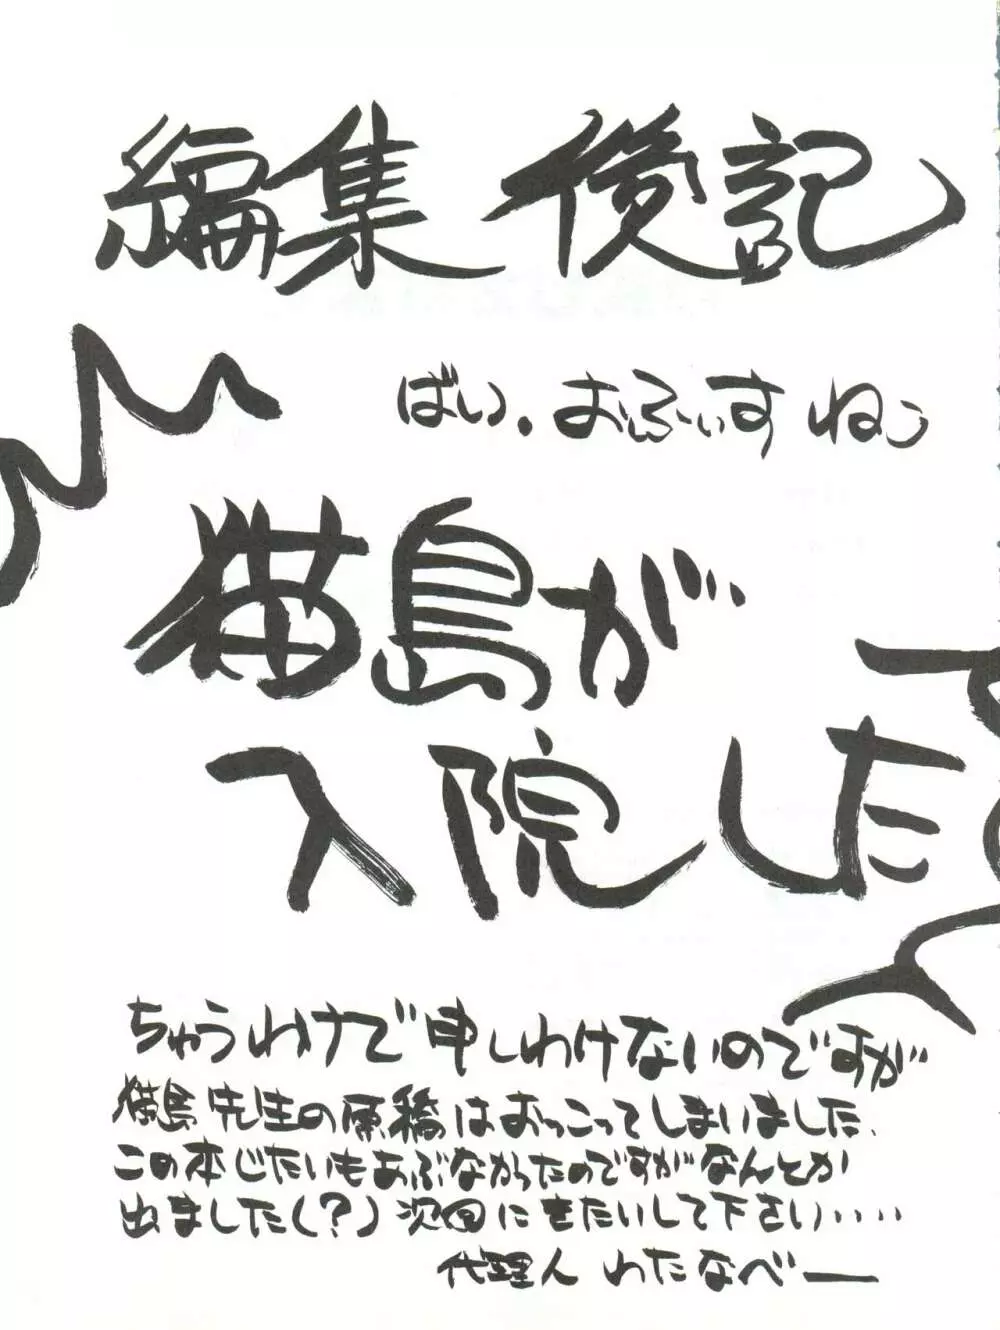 編集後記
ばい。おふぃす ねこ
猫島が
入院した
ちゅうわけで申しわけないのですが
猫島先生の原稿はおっこってしまいました、
この本じたいもあぶなかったのですがなんとか
出ました(?)次回にきたいして下さい・・・・
代理人 わたなべー